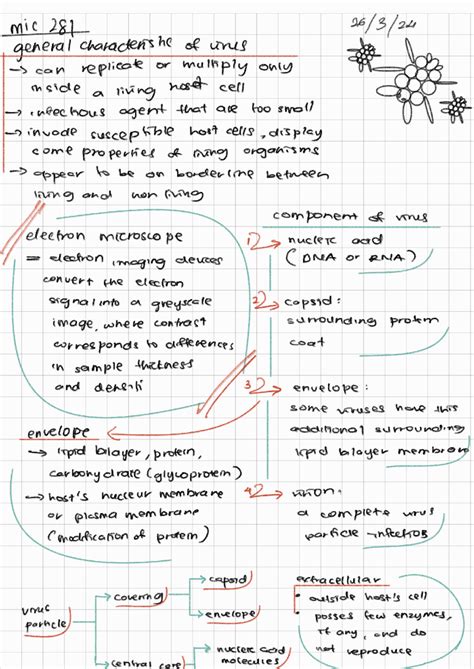 mic 281
26/3/24
general characteristic of virus
→ can replicate or multiply only
inside a living host cell
→ infectious agent that are too small
→ invade susceptible host cells, display
some properties of living organisms
→ appear to be on borderline between
living and non living
electron microscope
= electron imaging devices
convert the electron
signal into a greyscale
image, where contrast
corresponds to differences
in sample thickness
and densiti
component of virus
1) nucleic acid
(DNA or RNA)
2) capsid:
surrounding protein
coat
3) envelope:
some viruses have this
additional surrounding
lipid bilayer membrane
4) virion:
a complete virus
particle infectios
envelope
→ lipid bilayer, protein,
carbohydrate (glycoprotein)
→ host's nucleur membrane
or plasma membrane
(modification of protein)
virus
particle
covering
capsid
envelope
central core
nucleic acid
molecules
extracellular
• outside host's cell
• posses few enzymes,
if any, and do
not reproduce